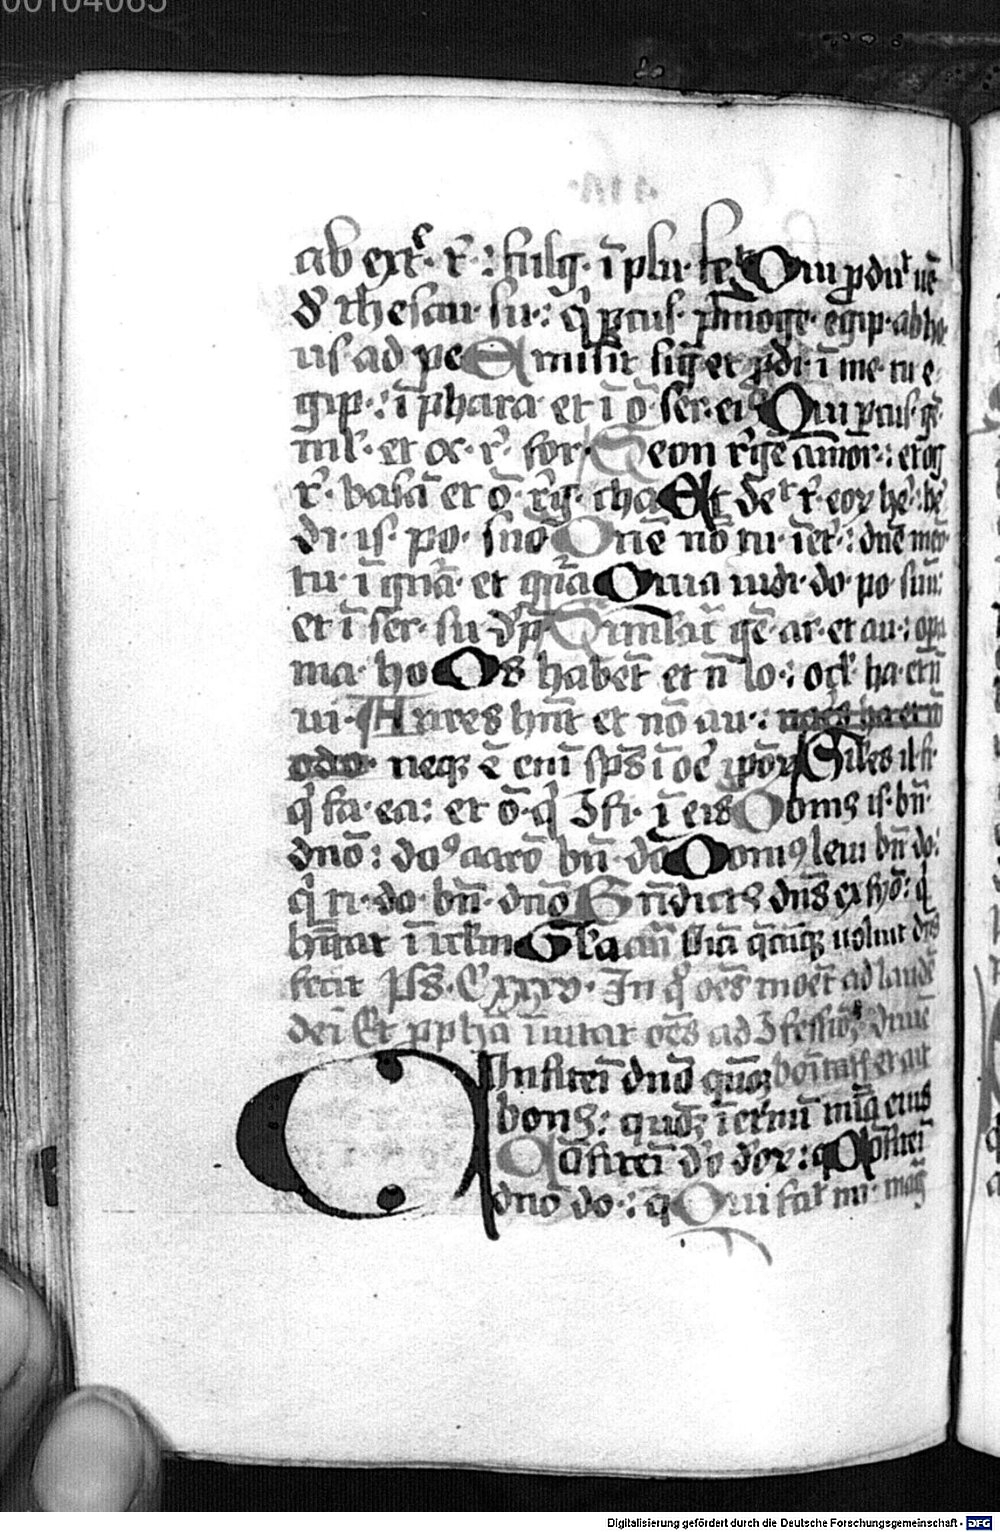 00104065
ab ext.r r.: fulg. ī plu. fet Qui ꝓdux uē
d' thesau su.: q' ꝑcus. pͥmoge. egip. ab ho.
us ad pe Et misit siḡ et ꝓdi. ī me. tu e
gip.: ī phara et ī ō ser. ei' Qui ꝑcus. gē.
ml'. et oc. r'. for. Seon r'gē amor.: et og
r'. basā et ō. r'g. cha Et de't t'. eoꝝ he'.: he'
di. is. po. suo Dn̄e no tu. ī et'.: dn̄e meō.
tu. ī gnā. et gn̄a Quia iudi. do. po. suū:
et ī ser. su. d'p̄ Simlac̄ gē. ar. et au.: opa
ma. ho Os habēt et n̄ lo.: oc'l ha. et n̄
ui. Aures hn̄t et nō au.:
neqꝫ ē eni sps ī oē ipoꝝ Siles il. fi.
q' fa. ea: et ō. q' ꝯfi. ī eis Domꝰ is. bn̄.
dn̄o: doꝰ aarō bn̄. do Domꝰ leui bn̄. do:
q' ti. do. bn̄. dn̄o Bn̄dictꝰ dn̄s ex syō: q'
hītat ī irl'm Gla Oīa q̄cūqꝫ uoluit dn̄s
fecit Ps. Cxxxv. In q' oēs monet ad laudē
dei Et ꝓphā īuitat oēs ad ꝯfessiōꝫ diuīe
Onfitei dn̄o qm̄ bonitatis et ait
bonꝰ: qm̄ ī et'nū mīa eius
Cōfitei do deoꝝ: q Cōfitei
dn̄o do.: q Qui fac̄ mi. maḡ
Digitalisierung gefördert durch die Deutsche Forschungsgemeinschaft - DFG